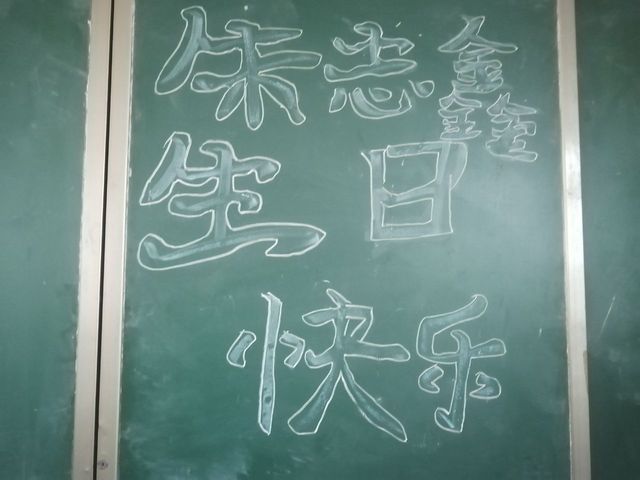 朱志鑫
生日
快乐